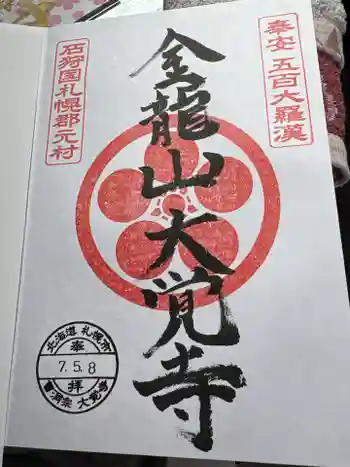 奉安 五百大羅漢
金龍山大覚寺
石狩国札幌郡元村
北海道 札幌市
奉拝
7.5.8
曹洞宗 大覚寺